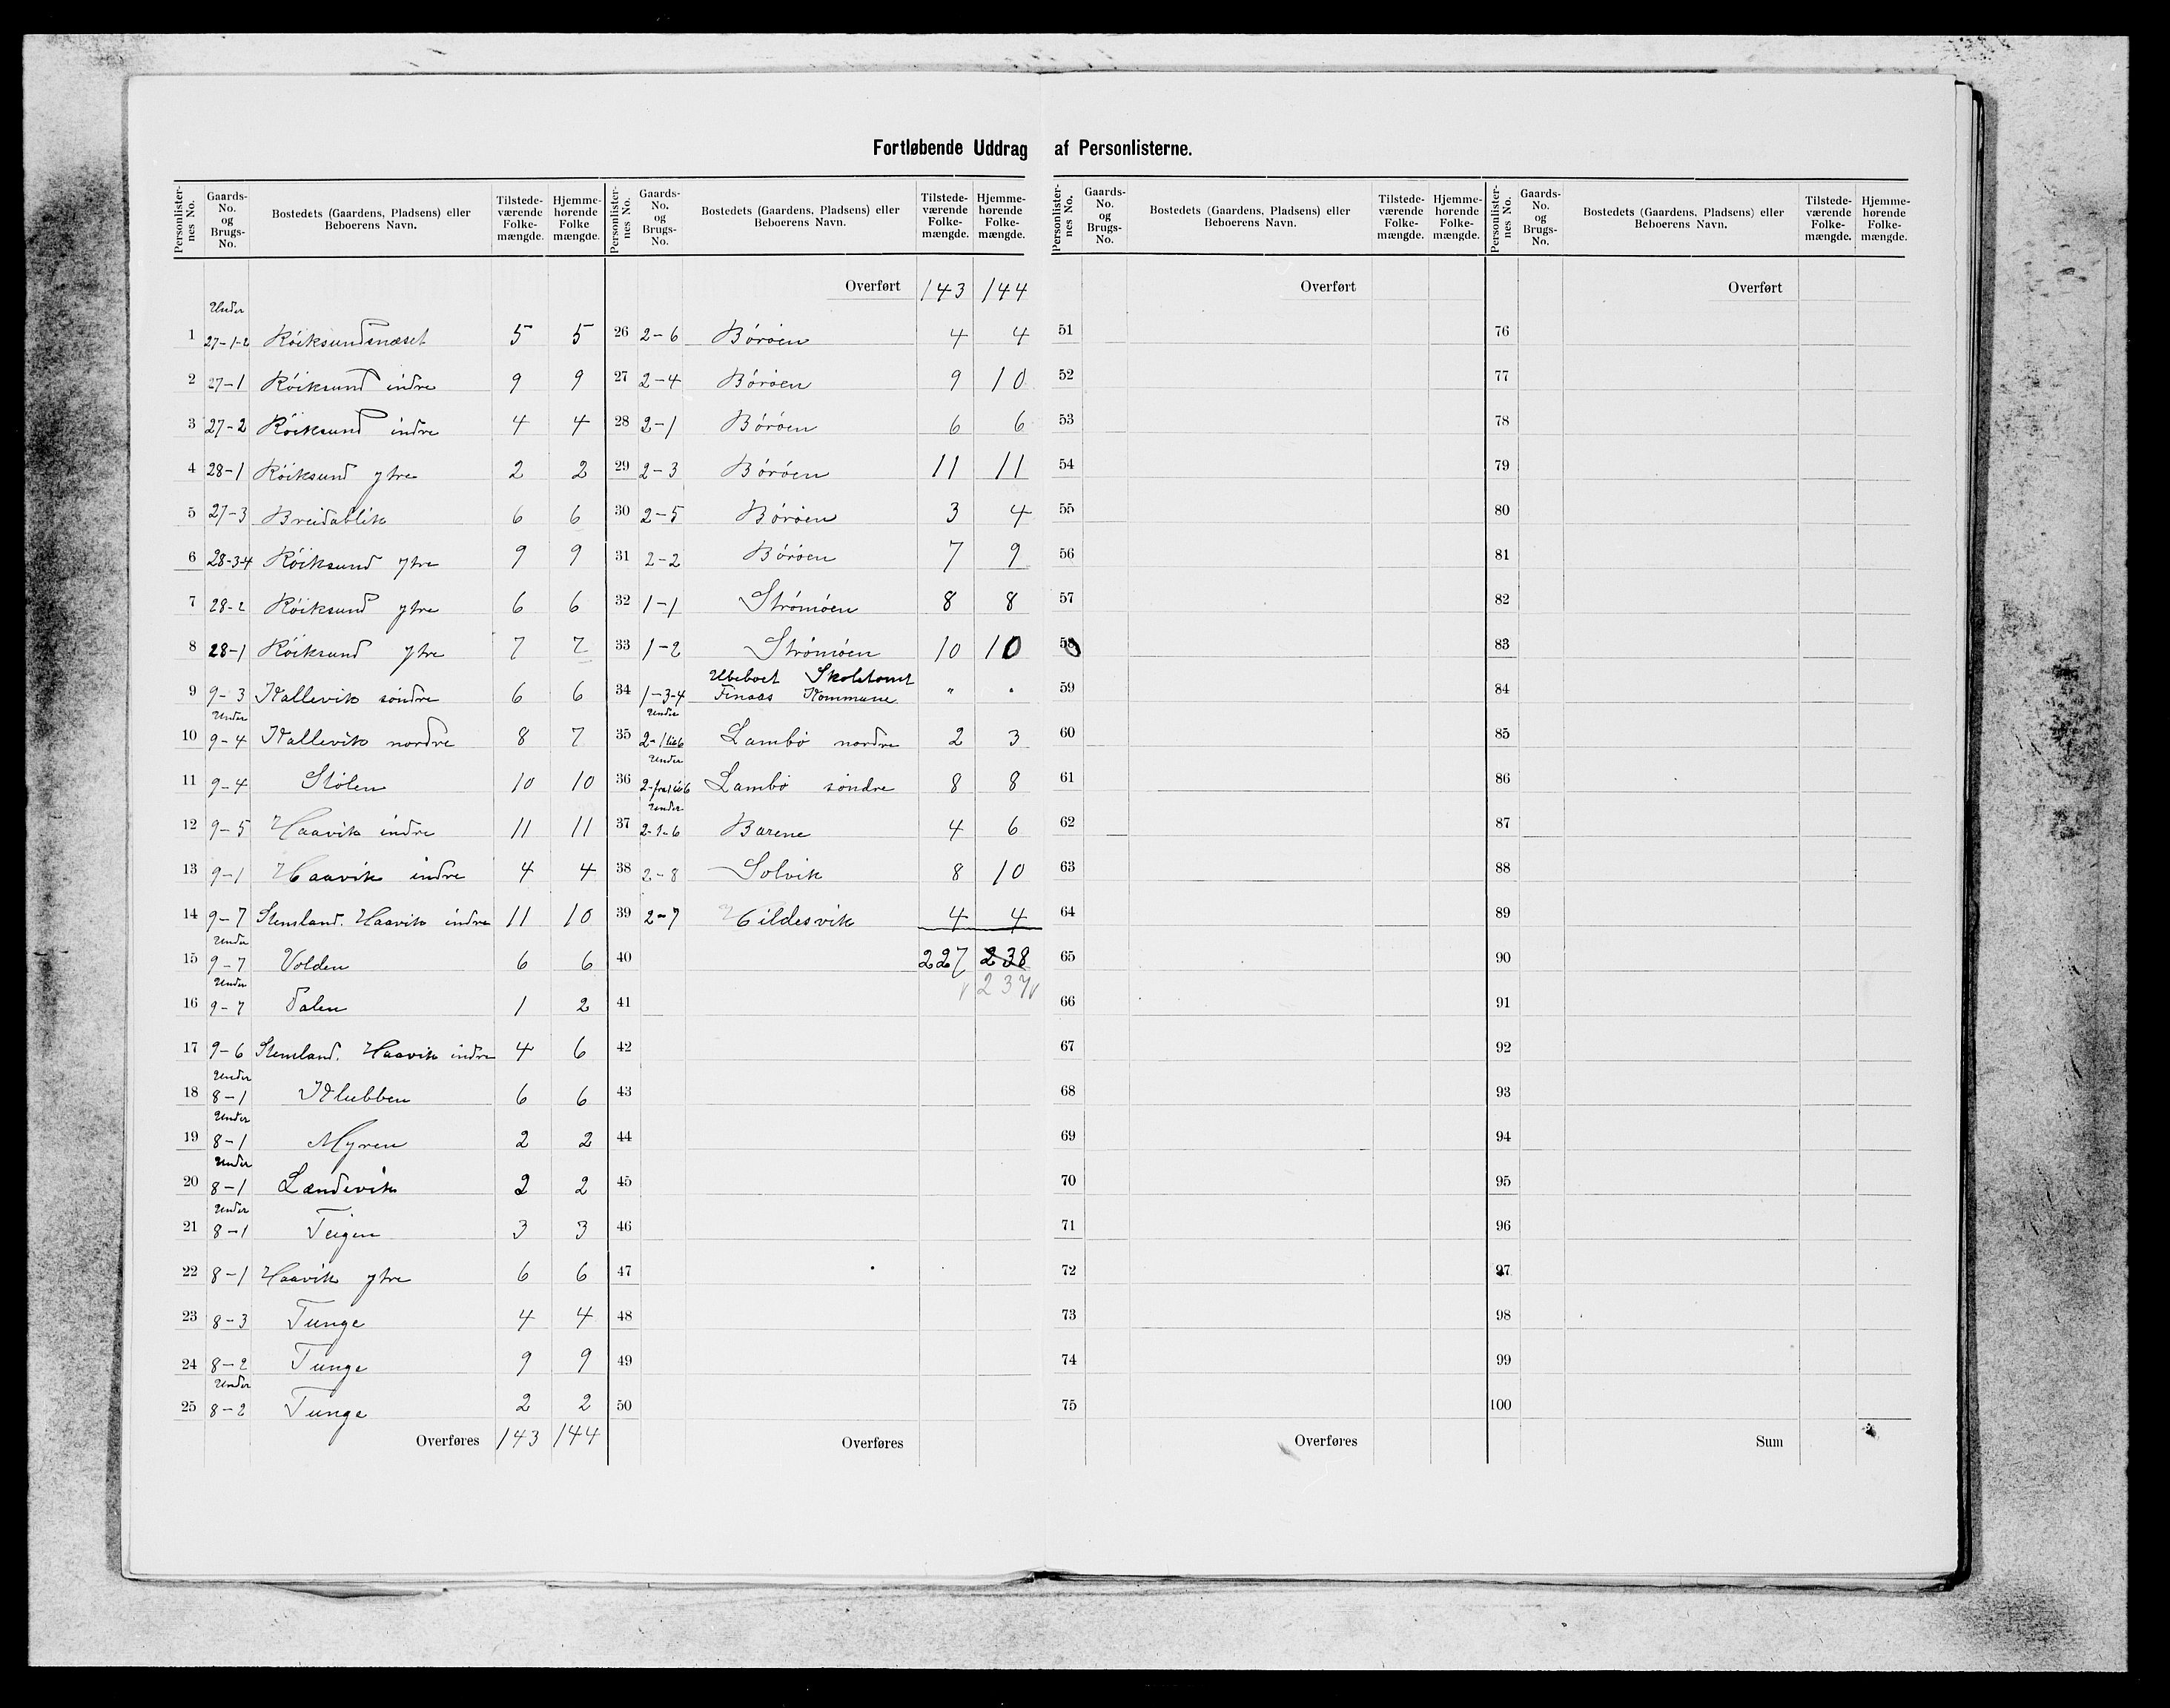 Fortløbende Uddrag af Personlisterne.
Personlister-nes No. Gaards-No. og Brugs-No. Bostedets (Gaardens, Pladsens) eller Beboerens Navn. Tilstede-værende Folke-mængde. Hjemme-hørende Folke mængde.
Under
1 27-1-2 Røiksundsnæset 5 5
2 27-1 Røiksund indre 9 9
3 27-2 Røiksund indre 4 4
4 28-1 Røiksund ytre 2 2
5 27-3 Breidablik 6 6
6 28-3-4 Røiksund ytre 9 9
7 28-2 Røiksund ytre 6 6
8 28-1 Røiksund ytre 7 7
9 9-3 Kallevik søndre 6 6
Under
10 9-4 Kallevik nordre 8 7
11 9-4 Stølen 10 10
12 9-5 Haavik indre 11 11
13 9-1 Haavik indre 4 4
14 9-7 Stemland. Haavik indre 11 10
Under
15 9-7 Volden 6 6
Under
16 9-7 Dalen 1 2
17 9-6 Stemland. Haavik indre 4 6
Under
18 8-1 Klubben 6 6
Under
19 8-1 Myren 2 2
Under
20 8-1 Landevik 2 2
Under
21 8-1 Teigen 3 3
22 8-1 Haavik ytre 6 6
23 8-3 Tunge 4 4
24 8-2 Tunge 9 9
Under
25 8-2 Tunge 2 2
Overføres 143 144
Personlister-nes No. Gaards-No. og Brugs-No. Bostedets (Gaardens, Pladsens) eller Beboerens Navn. Tilstede-værende Folke-mængde. Hjemme-hørende Folke-mængde.
Overført 143 144
26 2-6 Børøen 4 4
27 2-4 Børøen 9 10
28 2-1 Børøen 6 6
29 2-3 Børøen 11 11
30 2-5 Børøen 3 4
31 2-2 Børøen 7 9
32 1-1 Strømøen 8 8
33 1-2 Strømøen 10 10
Ubeboet Skoletomt
34 1-3-4 Finaas Kommune " "
Under
35 2-1til6 Lambø nordre 2 3
Under
36 2-fra1til6 Lambø søndre 8 8
Under
37 2-1-6 Barene 4 6
38 2-8 Solvik 8 10
39 2-7 Hildesvik 4 4
40 227 238
237
41
42
43
44
45
46
47
48
49
50
Overføres
Personlister-nes No. Gaards-No. og Brugs-No. Bostedets (Gaardens, Pladsens) eller Beboerens Navn. Tilstede-værende Folke-mængde. Hjemme-hørende Folke-mængde.
Overført
51
52
53
54
55
56
57
58
59
60
61
62
63
64
65
66
67
68
69
70
71
72
73
74
75
Overføres
Personlister-nes No. Gaards-No. og Brugs-No. Bostedets (Gaardens, Pladsens) eller Beboerens Navn. Tilstede-værende Folke-mængde. Hjemme-hørende Folke-mængde.
Overført
76
77
78
79
80
81
82
83
84
85
86
87
88
89
90
91
92
93
94
95
96
97
98
99
100
Sum